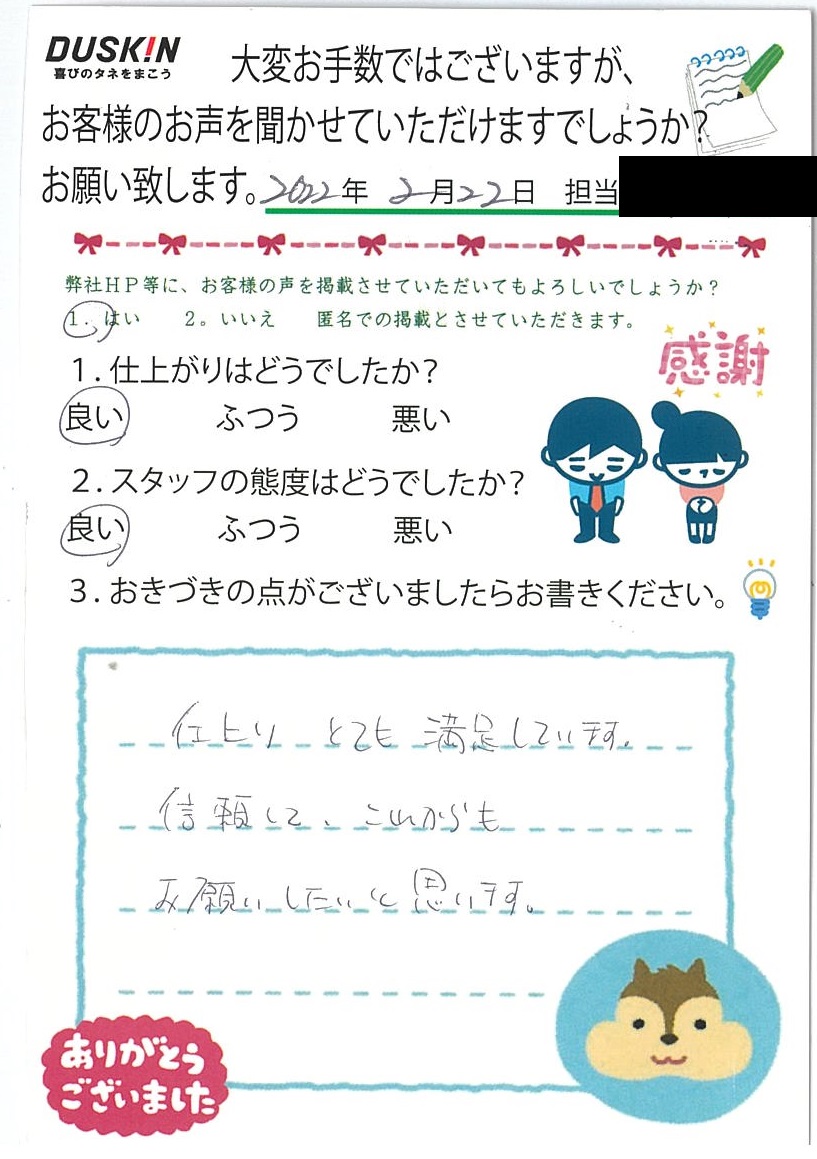 DUSKIN
喜びのタネをまこう
大変お手数ではございますが、
お客様のお声を聞かせていただけますでしょうか?
お願い致します。2022年 2月22日 担当
弊社HP等に、お客様の声を掲載させていただいてもよろしいでしょうか?
1. はい 2。いいえ 匿名での掲載とさせていただきます。
感謝
1.仕上がりはどうでしたか?
良い ふつう 悪い
2.スタッフの態度はどうでしたか?
良い ふつう 悪い
3.おきづきの点がございましたらお書きください。
仕上り とても 満足しています。
信頼して、これからも
お願いしたいと思います。
ありがとう
ございました